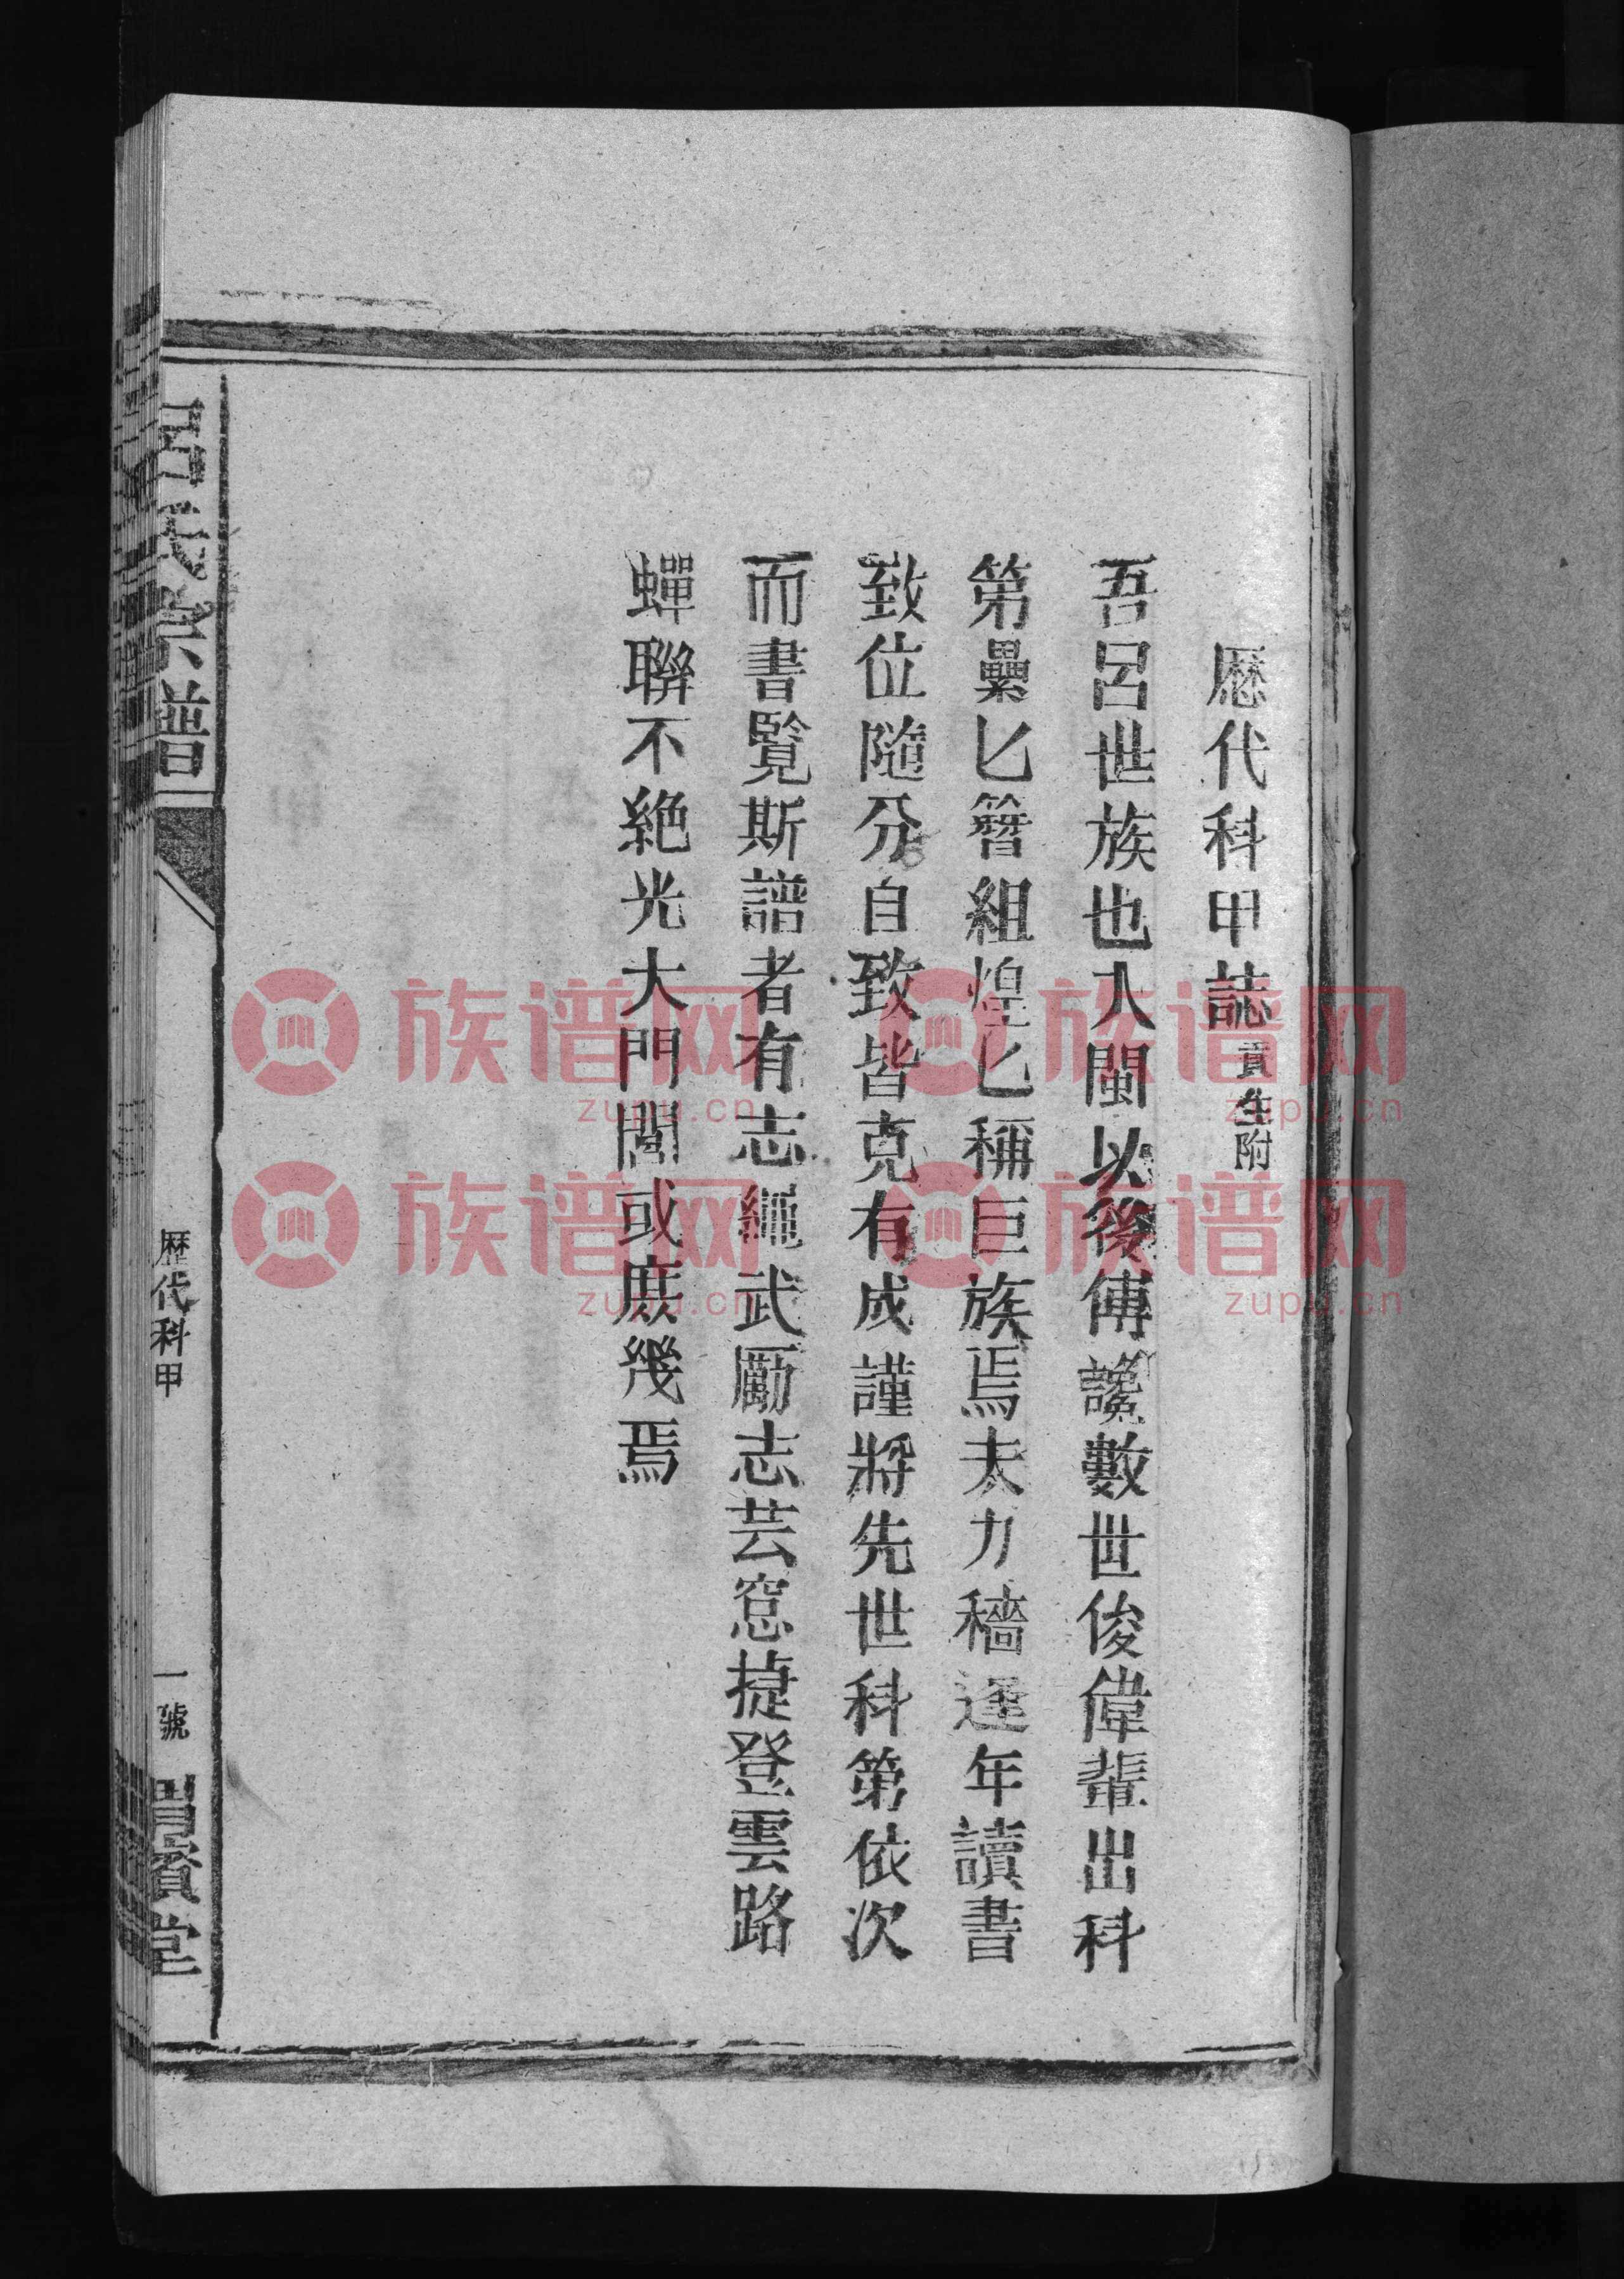 歷代科甲誌 貢生附
吾呂世族也入閩以後傅讒數世俊偉輩出科
第纍匕簪組煌匕稱巨族焉夫力穡逢年讀書
致位隨分自致皆克有成謹將先世科第依次
而書覽斯譜者有志繩武勵志芸窓捷登雲路
蟬聯不絶光大門閭或庶幾焉
呂氏宗譜
歷代科甲
一號
渭濱堂
族谱网
zupu.cn
族谱网
zupu.cn
族谱网
zupu.cn
族谱网
zupu.cn